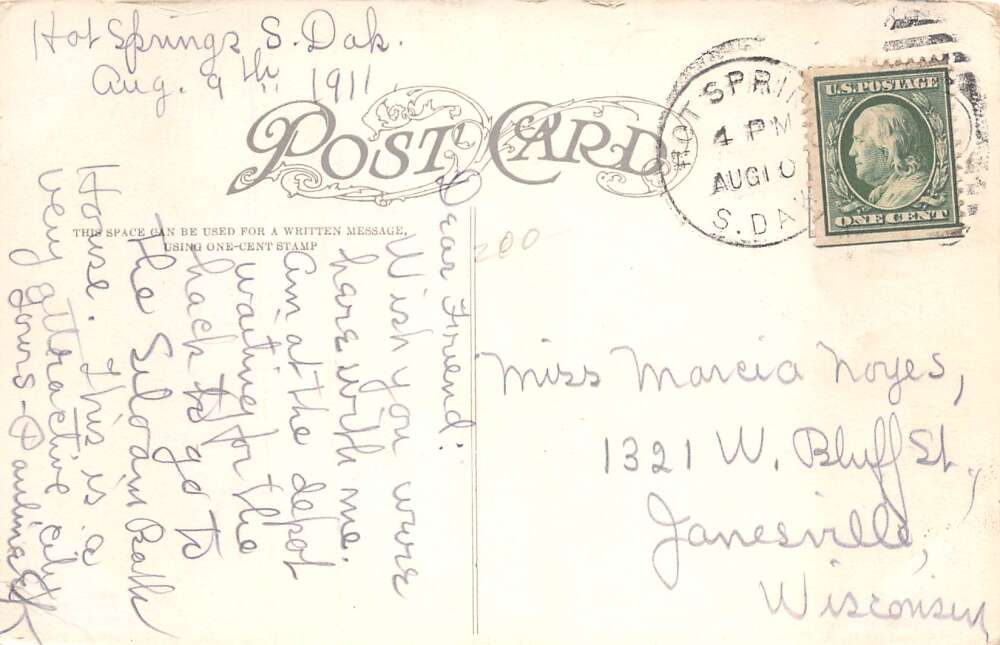 Hot Springs S. Dak.
Aug. 9th 1911
POST CARD
THIS SPACE CAN BE USED FOR A WRITTEN MESSAGE,
USING ONE-CENT STAMP
HOT SPRIN
4 PM
AUG 10
S. DAK
U.S. POSTAGE
ONE CENT
200
Dear Friend:
Wish you were
here with me.
Am at the depot
waiting for the
hack to go to
the Siloam Bath
House. This is a
very attractive city
Yours - Pauline
Miss Marcia Noyes,
1321 W. Bluff St.,
Janesville,
Wisconsin